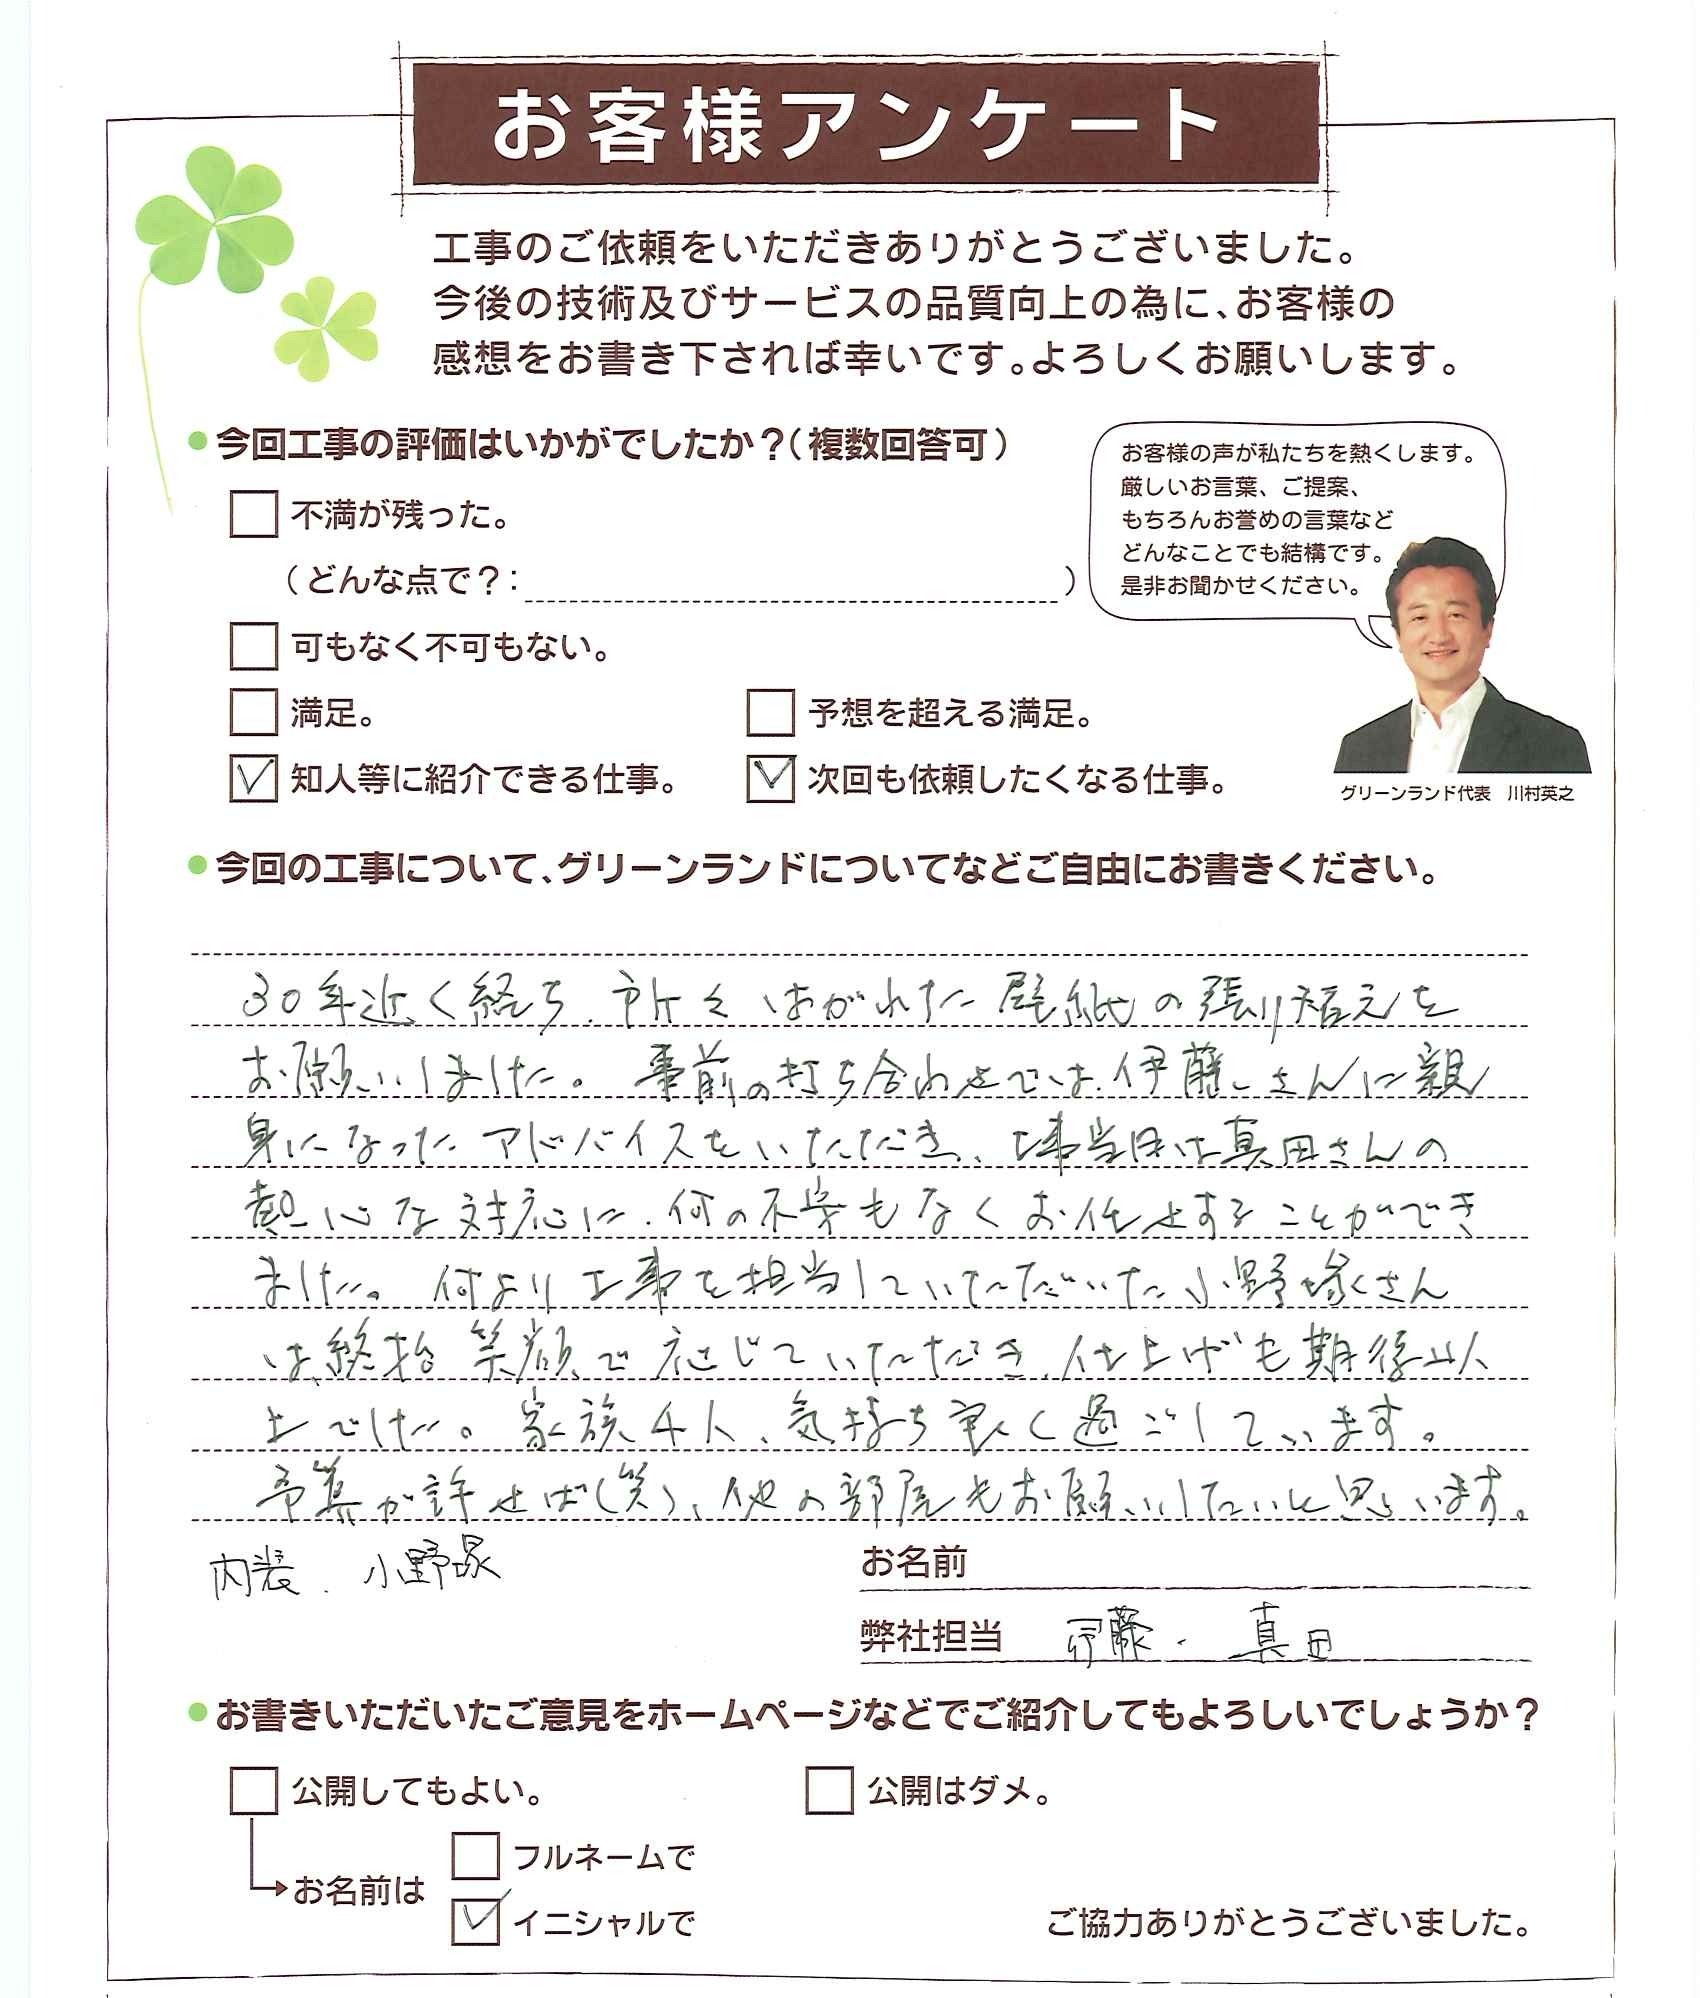 お客様アンケート
工事のご依頼をいただきありがとうございました。
今後の技術及びサービスの品質向上の為に、お客様の
感想をお書き下されば幸いです。よろしくお願いします。
●今回工事の評価はいかがでしたか？（複数回答可）
不満が残った。
（どんな点で？：　）
可もなく不可もない。
満足。
予想を超える満足。
知人等に紹介できる仕事。
次回も依頼したくなる仕事。
お客様の声が私たちを熱くします。
厳しいお言葉、ご提案、
もちろんお誉めの言葉など
どんなことでも結構です。
是非お聞かせください。
グリーンランド代表　川村英之
●今回の工事について、グリーンランドについてなどご自由にお書きください。
30年近く経ち、所々はがれた壁紙の張り替えを
お願いしました。事前の打ち合わせでは、伊藤さんに親
身になったアドバイスをいただき、工事当日は真田さんの
熱心な対応に、何の不安もなくお任せすることができ
ました。何より工事を担当していただいた小野塚さん
は、終始笑顔で応じていただき、仕上げも期待以
上でした。家族4人、気持ち良く過ごしています。
予算が許せば（笑）、他の部屋もお願いしたいと思います。
内装．小野塚
お名前
弊社担当　伊藤・真田
●お書きいただいたご意見をホームページなどでご紹介してもよろしいでしょうか？
公開してもよい。
公開はダメ。
お名前は
フルネームで
イニシャルで
ご協力ありがとうございました。